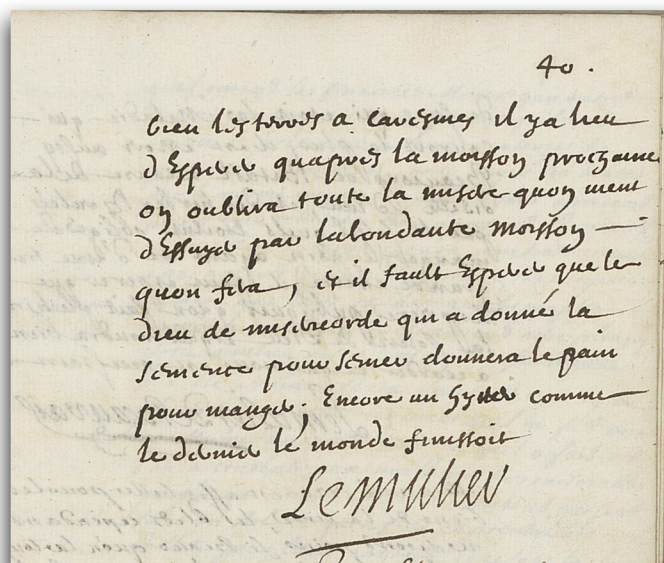 40.
bien les terres a caresmes il ya lieu
d'Esperer quapres la moisson prochaine
on oublira toute la misere quon vient
d'Essuyer par labondante moisson —
quon fera, et il fault Esperer que le
dieu de misericorde qui a donné la
semence pour semer donnera le pain
pour manger; Encore un hyver comme
le dernier le monde finissoit
Lemulier